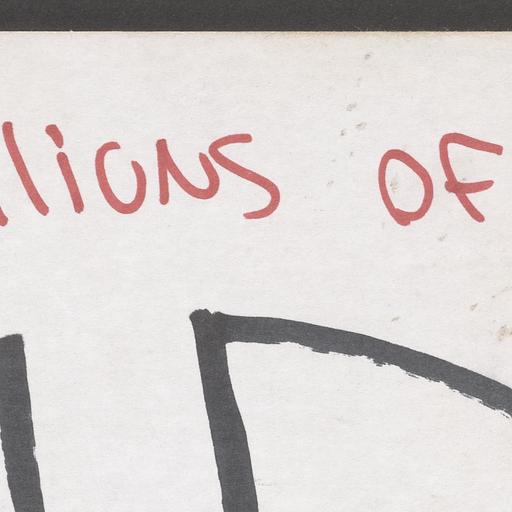 llions OF